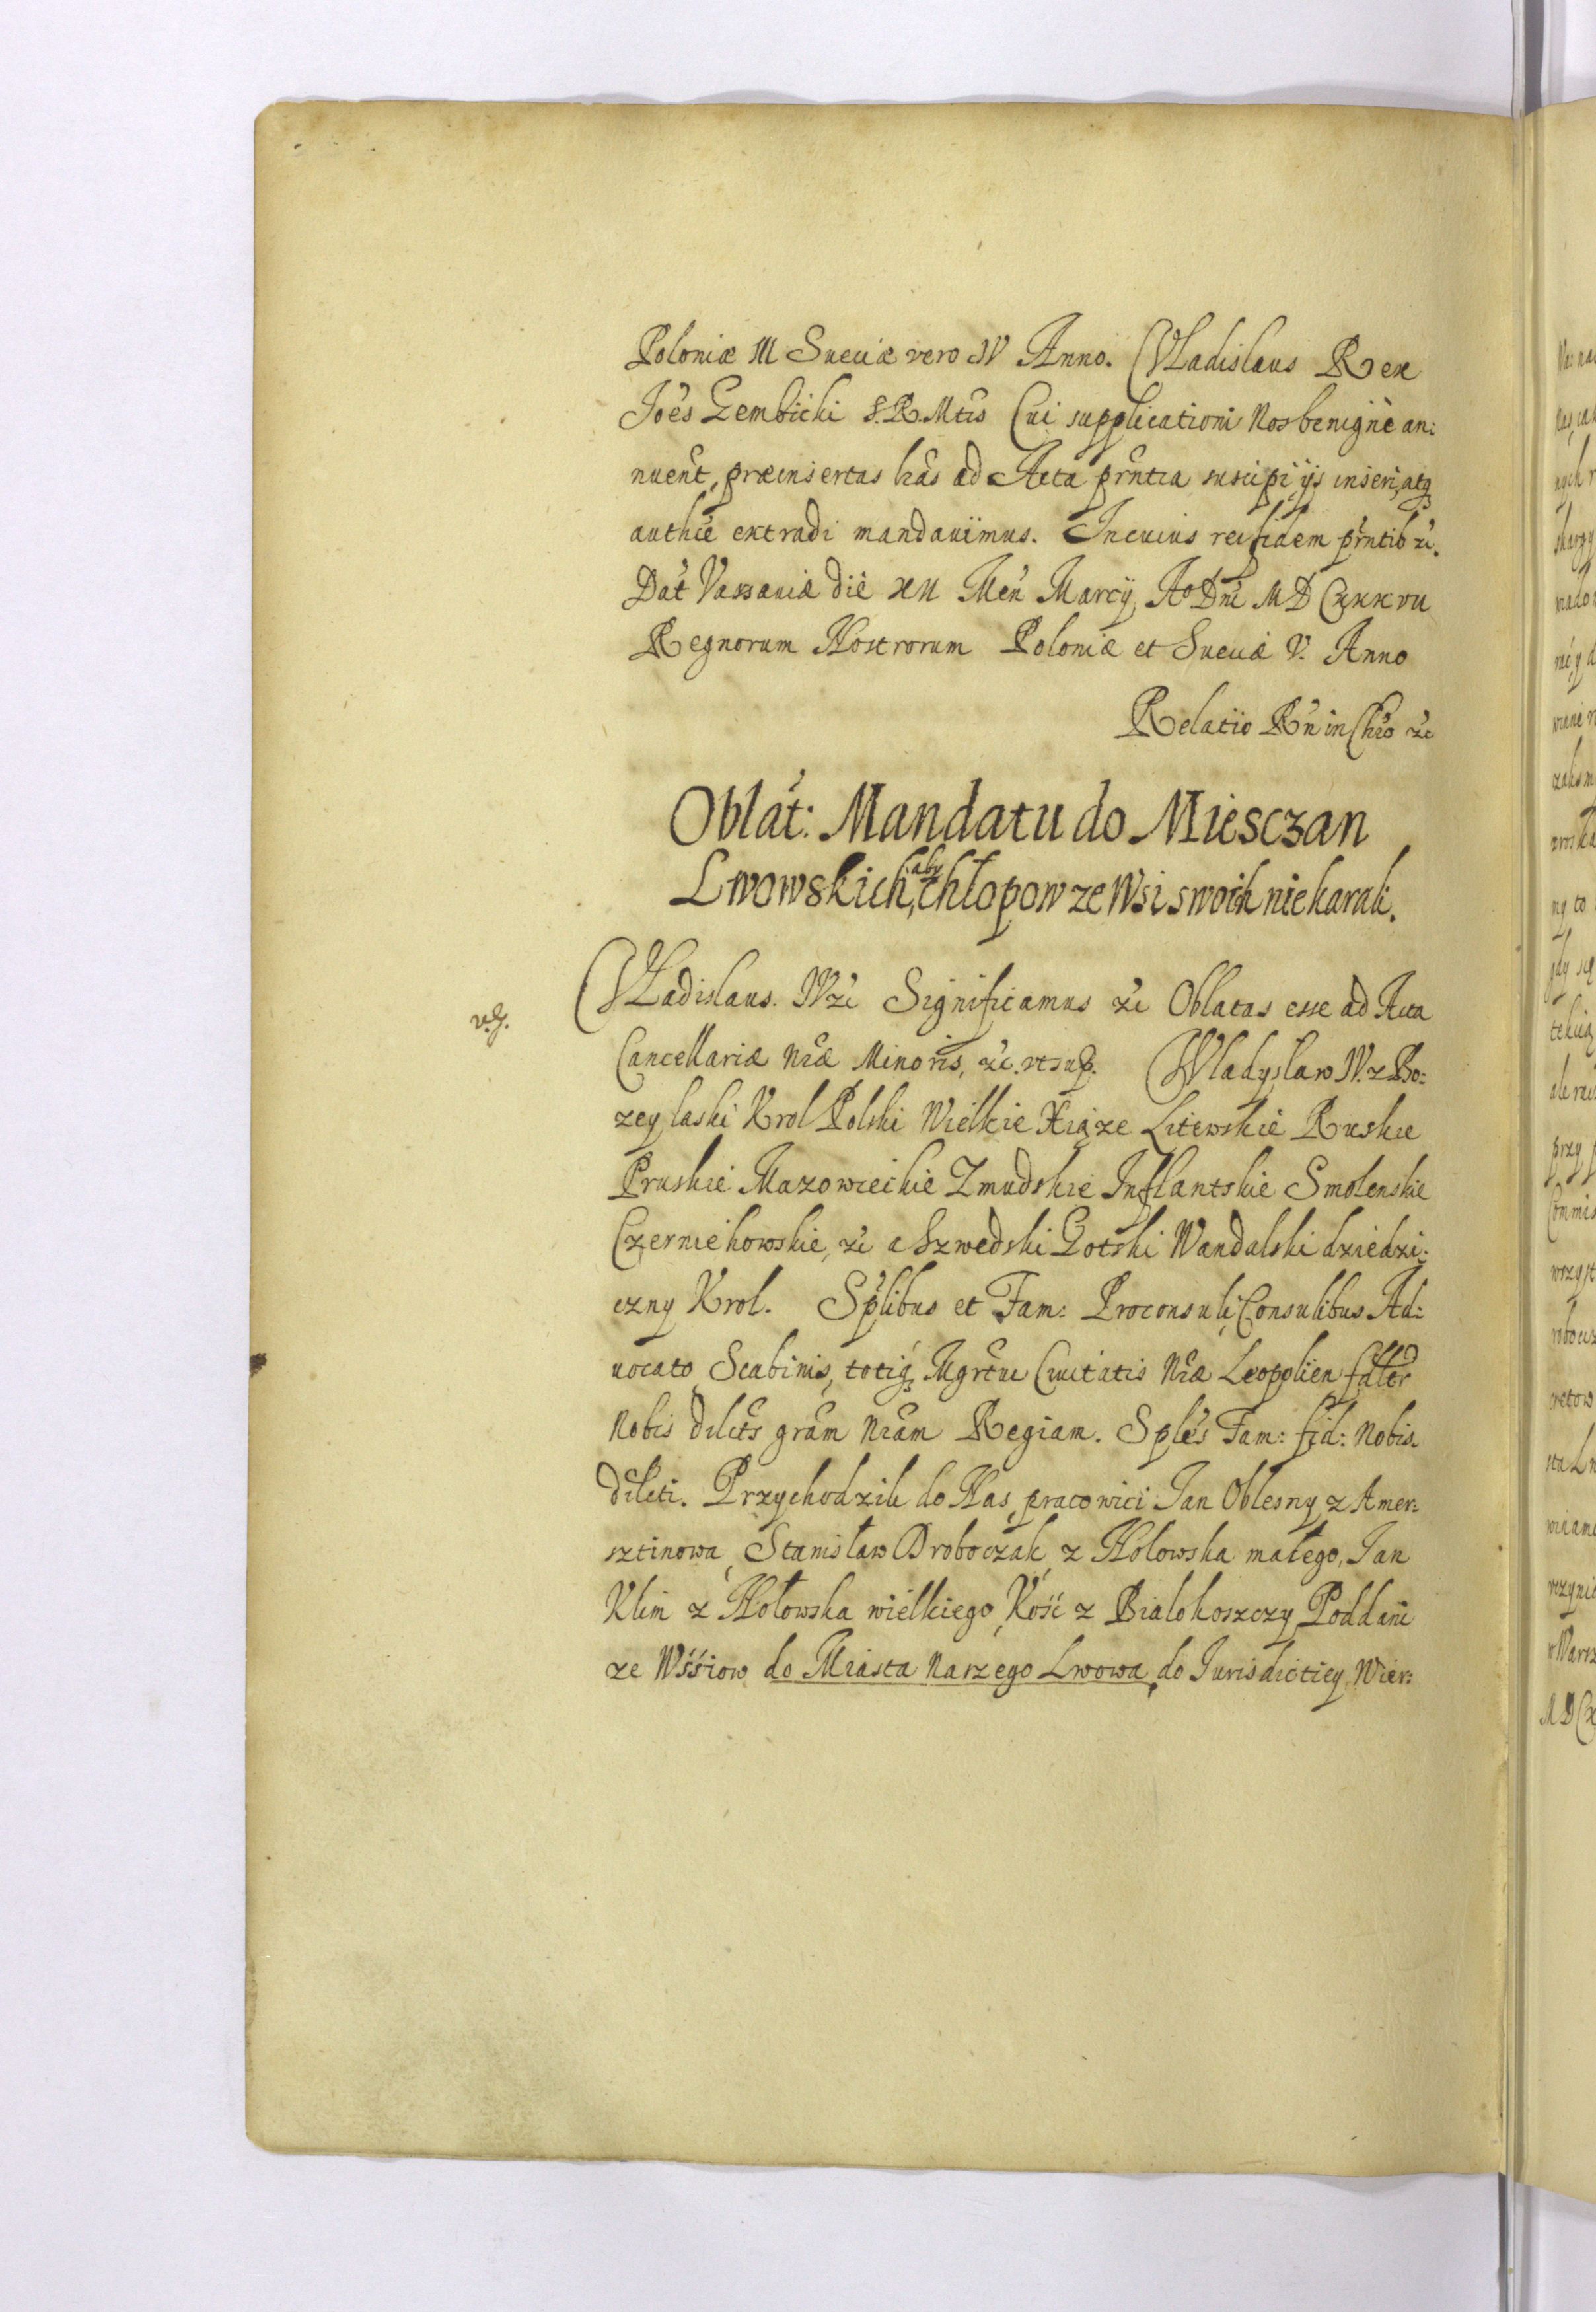 Poloniæ III Sueciæ vero IV Anno. Vladislaus Rex
Joes Gembicki S.R.Mtis Cui supplicationi Nos benignè an:
nuent, præinsertas lras ad Acta prntia suscipi, ijs inseri, atq
authce extradi mandauimus. In cuius rei fidem prntib zc.
Dat Varsauiæ die XII Men Marcij Ao Dni MDCXXXVII
Regnorum Nostrorum Poloniæ et Sueciæ V. Anno
Relatio Rn in Chro zc
Oblat: Mandatu do Miesczan
Lwowskich, aby chłopow ze Wsi swoih nie karali.
v.g.
Vladislaus. IV zc Significamus zc Oblatas esse ad Acta
Cancellariæ Nræ Minoris, zc. vt sup. Wladyslaw IV. z Bo:
zey laski Krol Polski Wielkie Xiąze Litewskie Ruskie
Pruskie Mazowieckie Zmudskie Inflantskie Smolenskie
Czerniehowskie, zc a Szwedski Gotski Wandalski dziedzi:
czny Krol. Splibus et Fam: Proconsuli, Consulibus Ad:
uocato Scabinis, totiq Mgrtui Ciuitatis Nræ Leopolien fidlr
Nobis dilcts gram Nram Regiam. Sples Fam: fid: Nobis.
dilcti. Przychodzili do Nas, pracowici Jan Oblesny z Amer:
sztinowa, Stanisław Droboczak z Hołowska małego, Jan
Klim z Hołowska wielkiego, Kość z Bialohoszczy Poddani
ze Wśsiow do Miasta Naszego Lwowa, do Jurisdictiey Wier: